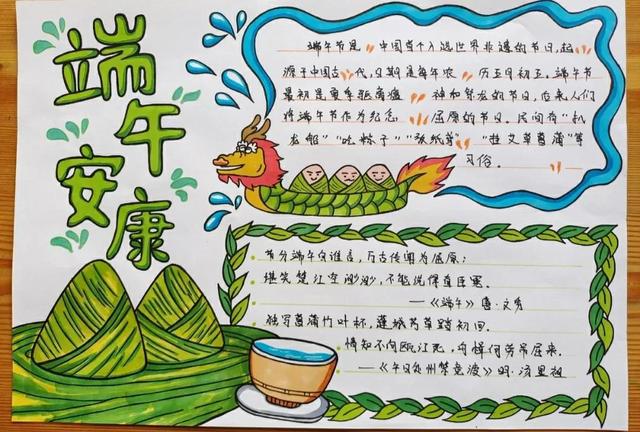 端午安康
端午节是中国首个入选世界非遗的节日，起
源于中国古代，日期是每年农历五月初五。端午节
最初是夏季驱离瘟神和祭龙的节日，后来人们
将端午节作为纪念屈原的节日。民间有"扒
龙船""吃粽子""张纸符""挂艾草菖蒲"等
习俗。
节分端午自谁言，万古传闻为屈原；
堪笑楚江空渺渺，不能洗得直臣冤。
——《端午》唐·文秀
独写菖蒲竹叶杯，蓬城芳草踏初回。
情知不向瓯江死，舟楫何劳吊屈来。
——《午日处州禁竞渡》明·汤显祖